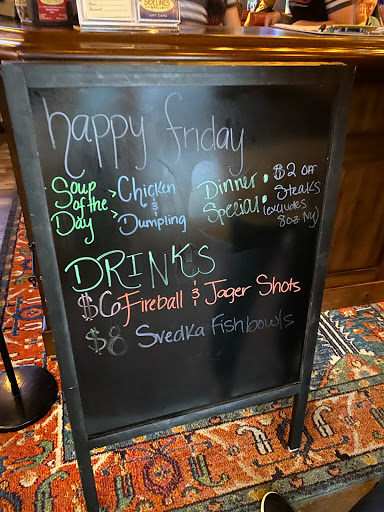 happy friday
Soup of the Day > Chicken & Dumpling
Dinner Special: $2 OFF Steaks (excludes 8oz NY)
DRINKS
$6 Fireball & Jager Shots
$8 Svedka Fishbowls
GIFT CARD